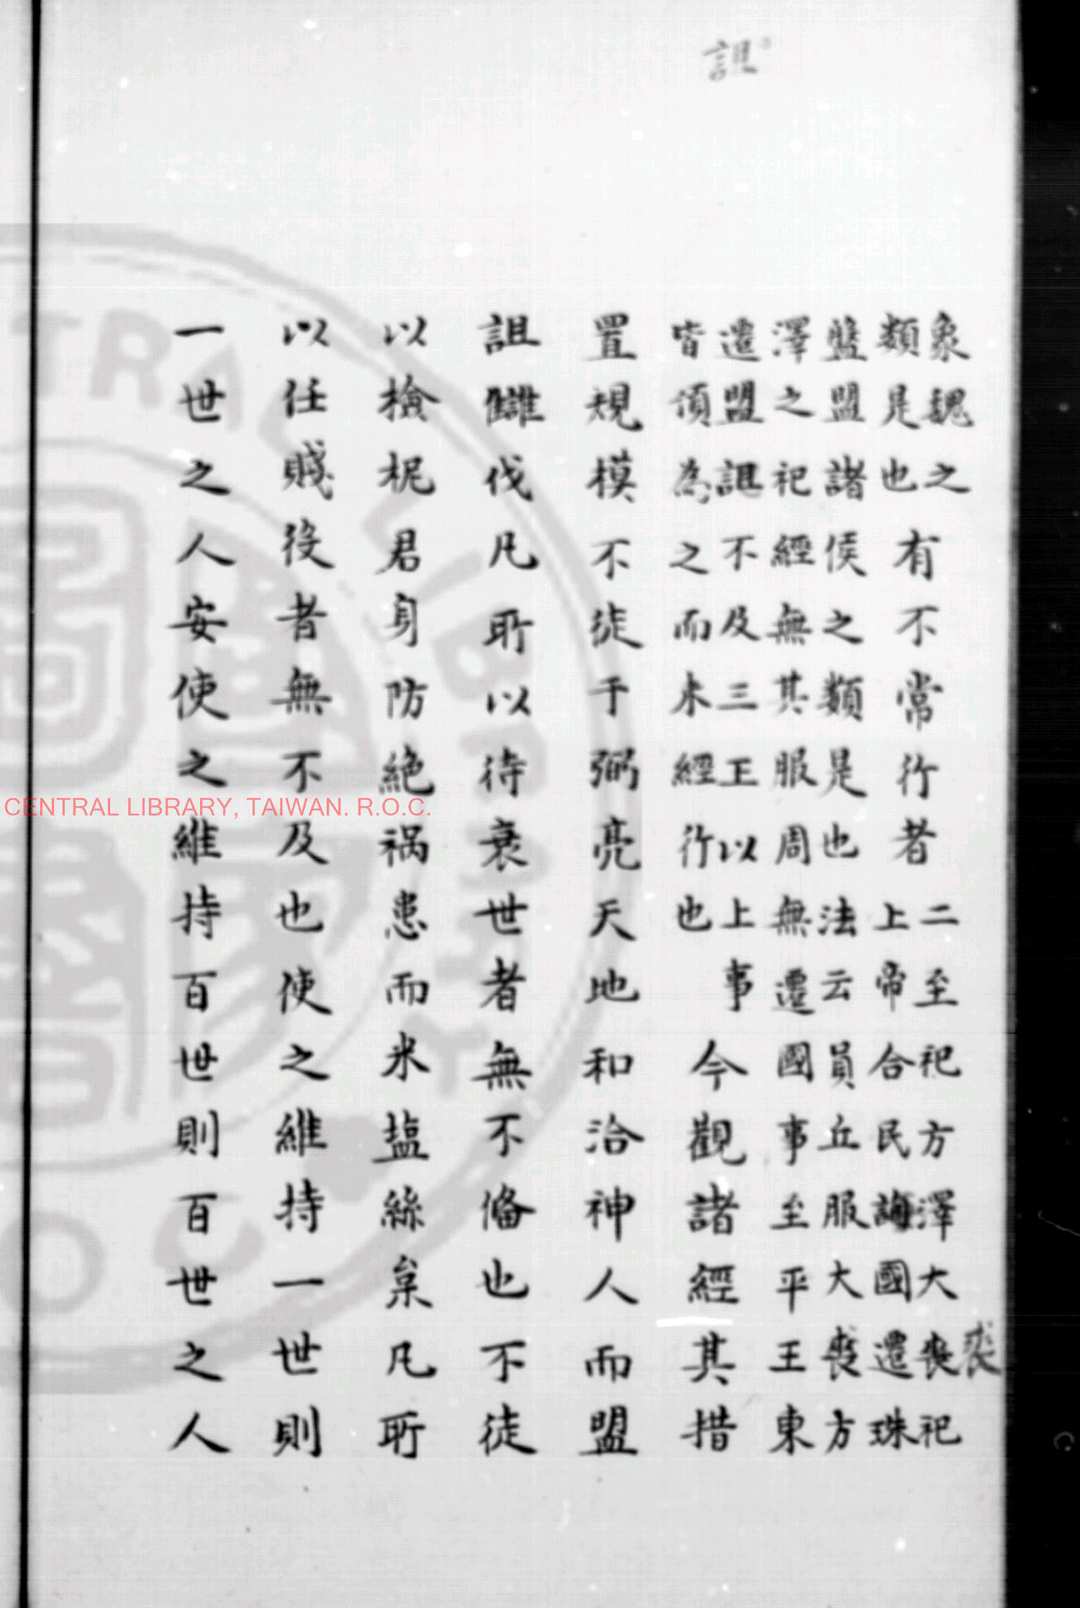 詛
象魏之
類是也
有不常行者
二至祀方澤大喪祀
上帝合民誨國遷珠
裘
盤盟諸侯之類是也法云員丘服大裘方
澤之祀經無其服周無遷國事至平王東
遷盟詛不及三王以上事
皆頂為之而未經行也
今觀諸經其措
置規模不徒于弼亮天地和洽神人而盟
詛讎伐凡所以待衰世者無不俻也不徒
以檢柅君身防絶禍患而米塩絲枲凡所
以任賤役者無不及也使之維持一世則
一世之人安使之維持百世則百世之人
CENTRAL LIBRARY, TAIWAN. R.O.C.